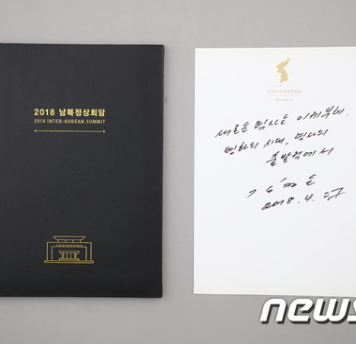 2018 남북정상회담
2018 INTER-KOREAN SUMMIT
새로운 력사는 이제부터.
평화의 시대, 력사의
출발점에서
김정은
2018. 4. 27
news